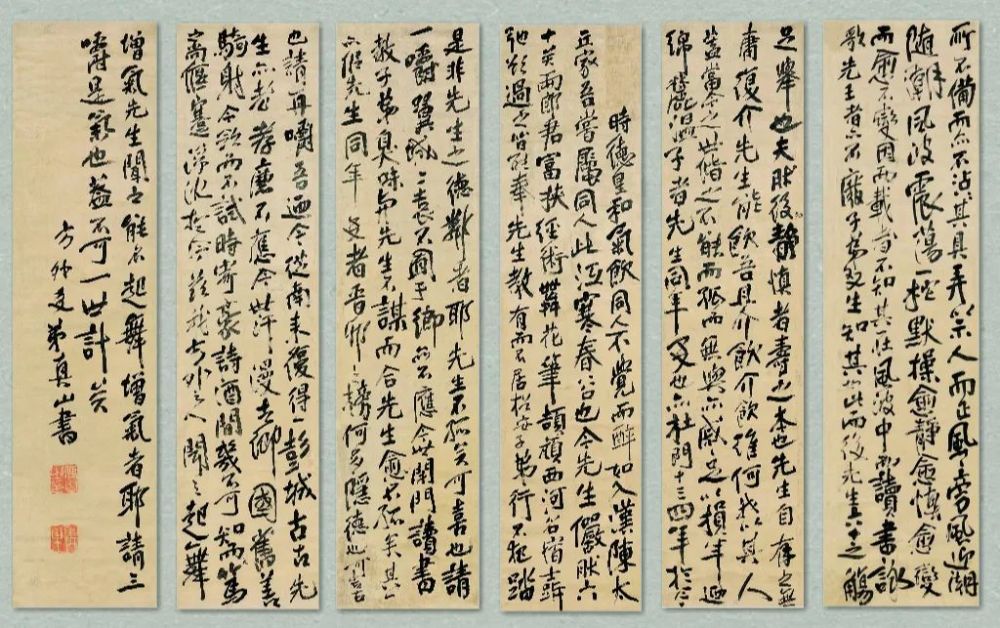 所不備而亦不沾其具弄等人而正風旁風迎潮
隨潮風波震蕩一柁默操愈靜愈慎愈變
而愈不變因而載者不知其在風波中讀書詠
歌先王者亦不廢子生知其以此而後先生六十之觴
足舉也夫然後靜慎者壽之本也先生自有之無
庸復介先生能飲吾具介飲介飲維何我以其人
蓋當今之世偕之不能而孤而無與亦厭足以損年迺
綿子者先生同年友也亦杜門十三四年於今
時德皇和氣飲同人不覺而醉如入漢陳太
丘家吾嘗屬同人此江寒春公也今先生儼然六
十矣兩郎君富扶經術花筆頡頏西河名宿
過之皆能奉先生教有而不居於子弟行不犯踏
是非先生之德鄰者耶先生不孤矣可喜也請
一嚼三喪不于鄉亦不應今世閉門讀書
教子弟臭味與先生不謀而合先生愈不孤矣其
亦先生同年迺者晉鄉之何多隱德也
也請再嚼吾迺今從南來復得一彭城古古先
生亦老孝廉不應今世汗漫去鄉國舊善
騎射今斂而不試時寄豪詩酒間幾不可知而篤
高偃蹇浮沉於今我方外之人聞之起舞
增氣先生聞之能不起舞增氣者耶請三
嚼是觥也蓋不可一世計矣
方外友弟真山書